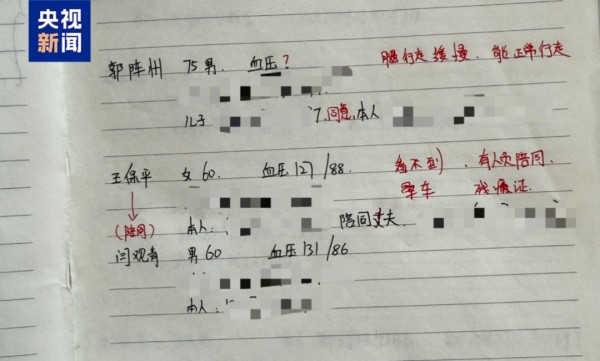 央视
新闻
郭阵州 75男. 血压? 腿行走缓慢, 能正常行走
儿子 7.同意,本人
王保平 女60. 血压127/88. 看不到, 有人员陪同.
晕车 残疾证.
(陪同) 本人: 陪同丈夫.
闫观青 男60 血压131/86
本人: